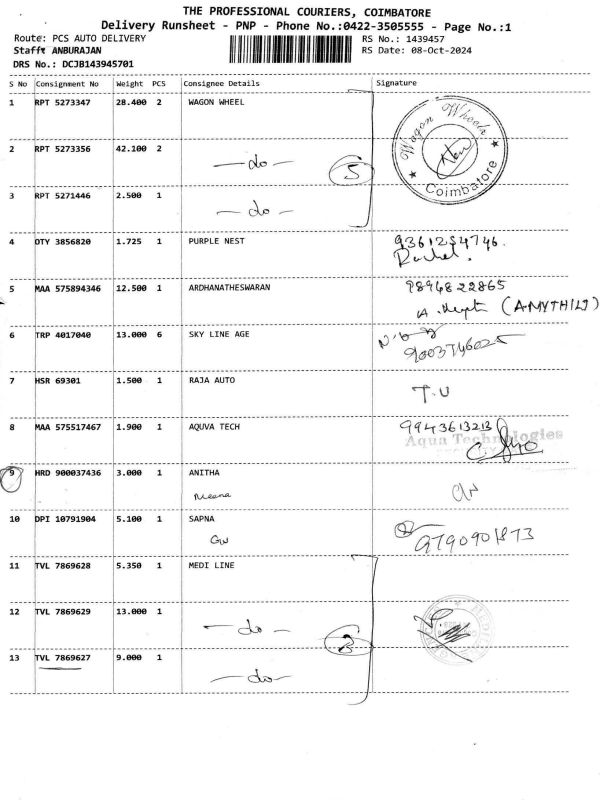 THE PROFESSIONAL COURIERS, COIMBATORE
Delivery Runsheet - PNP - Phone No.:0422-3505555 - Page No.:1
Route: PCS AUTO DELIVERY RS No.: 1439457
Stafft ANBURAJAN RS Date: 08-Oct-2024
DRS No.: DCJB143945701
S No Consignment No Weight PCS Consignee Details Signature
1 RPT 5273347 28.400 2 WAGON WHEEL
Wagon Wheels
2 RPT 5273356 42.100 2 -do- 5
Coimbatore
3 RPT 5271446 2.500 1 -do-
4 OTY 3856820 1.725 1 PURPLE NEST 9361254746.
5 MAA 575894346 12.500 1 ARDHANATHESWARAN 9894822865
(AMYTHILI)
6 TRP 4017040 13.000 6 SKY LINE AGE
9003746025
7 HSR 69301 1.500 1 RAJA AUTO
T.U
8 MAA 575517467 1.900 1 AQUVA TECH 9943613213
Aqua Technologies
9 HRD 900037436 3.000 1 ANITHA
Meena
10 DPI 10791904 5.100 1 SAPNA
9790901873
11 TVL 7869628 5.350 1 MEDI LINE
12 TVL 7869629 13.000 1 -do- 3
13 TVL 7869627 9.000 1 -do-